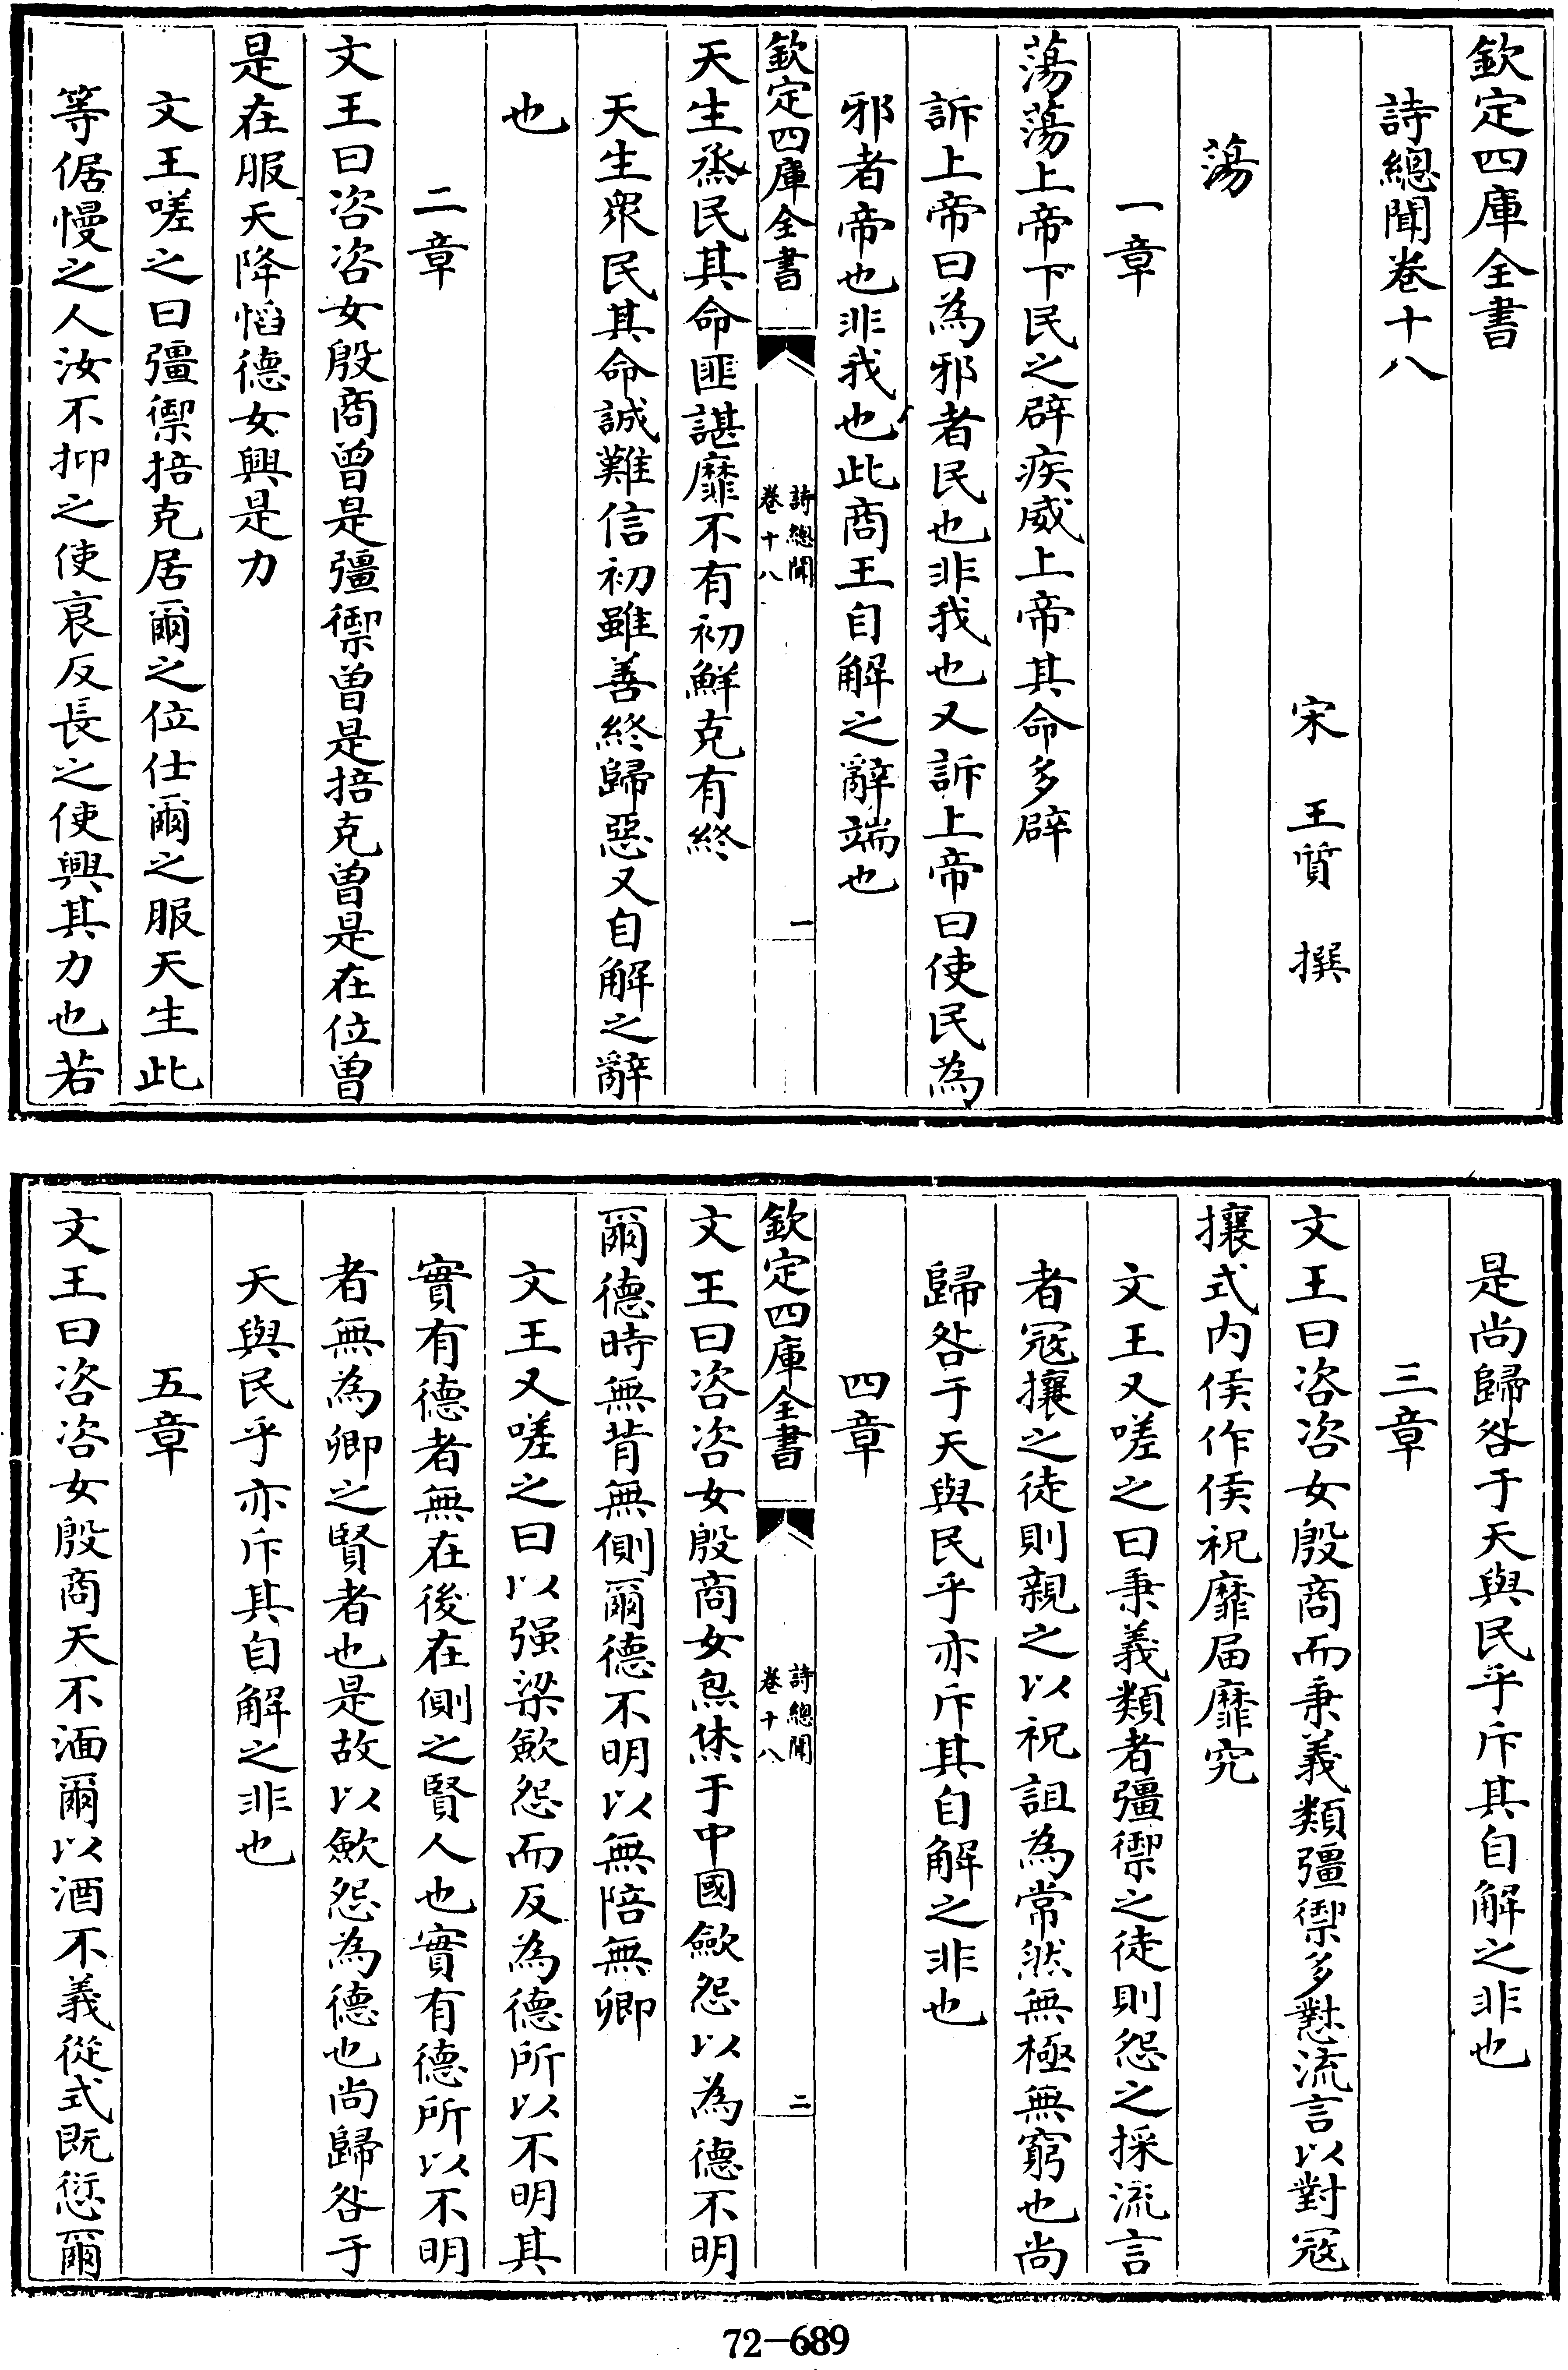 欽定四庫全書
詩總聞卷十八
宋王質撰
蕩
一章
蕩蕩上帝下民之辟疾威上帝其命多辟
訴上帝曰為邪者民也非我也又訴上帝曰使民為
邪者帝也非我也此商王自解之辭端也
欽定四庫全書
詩總聞
卷十八
一
天生烝民其命匪諶靡不有初鮮克有終
天生衆民其命誠難信初雖善終歸惡又自解之辭
也
二章
文王曰咨咨女殷商曾是彊禦曾是掊克曾是在位曾
是在服天降慆德女興是力
文王嗟之曰彊禦掊克居爾之位仕爾之服天生此
等倨慢之人汝不抑之使衰反長之使興其力也若
是尚歸咎于天與民乎斥其自解之非也
三章
文王曰咨咨女殷商而秉義類彊禦多懟流言以對寇
攘式内侯作侯祝靡届靡究
文王又嗟之曰秉義類者彊禦之徒則怨之採流言
者寇攘之徒則親之以祝詛為常然無極無窮也尚
歸咎于天與民乎亦斥其自解之非也
四章
欽定四庫全書
詩總聞
卷十八
二
文王曰咨咨女殷商女炰烋于中國斂怨以為德不明
爾德時無背無側爾德不明以無陪無卿
文王又嗟之曰以强梁斂怨而反為德所以不明其
實有德者無在後在側之賢人也實有德所以不明
者無為卿之賢者也是故以斂怨為德也尚歸咎于
天與民乎亦斥其自解之非也
五章
文王曰咨咨女殷商天不湎爾以酒不義從式既愆爾
72-689